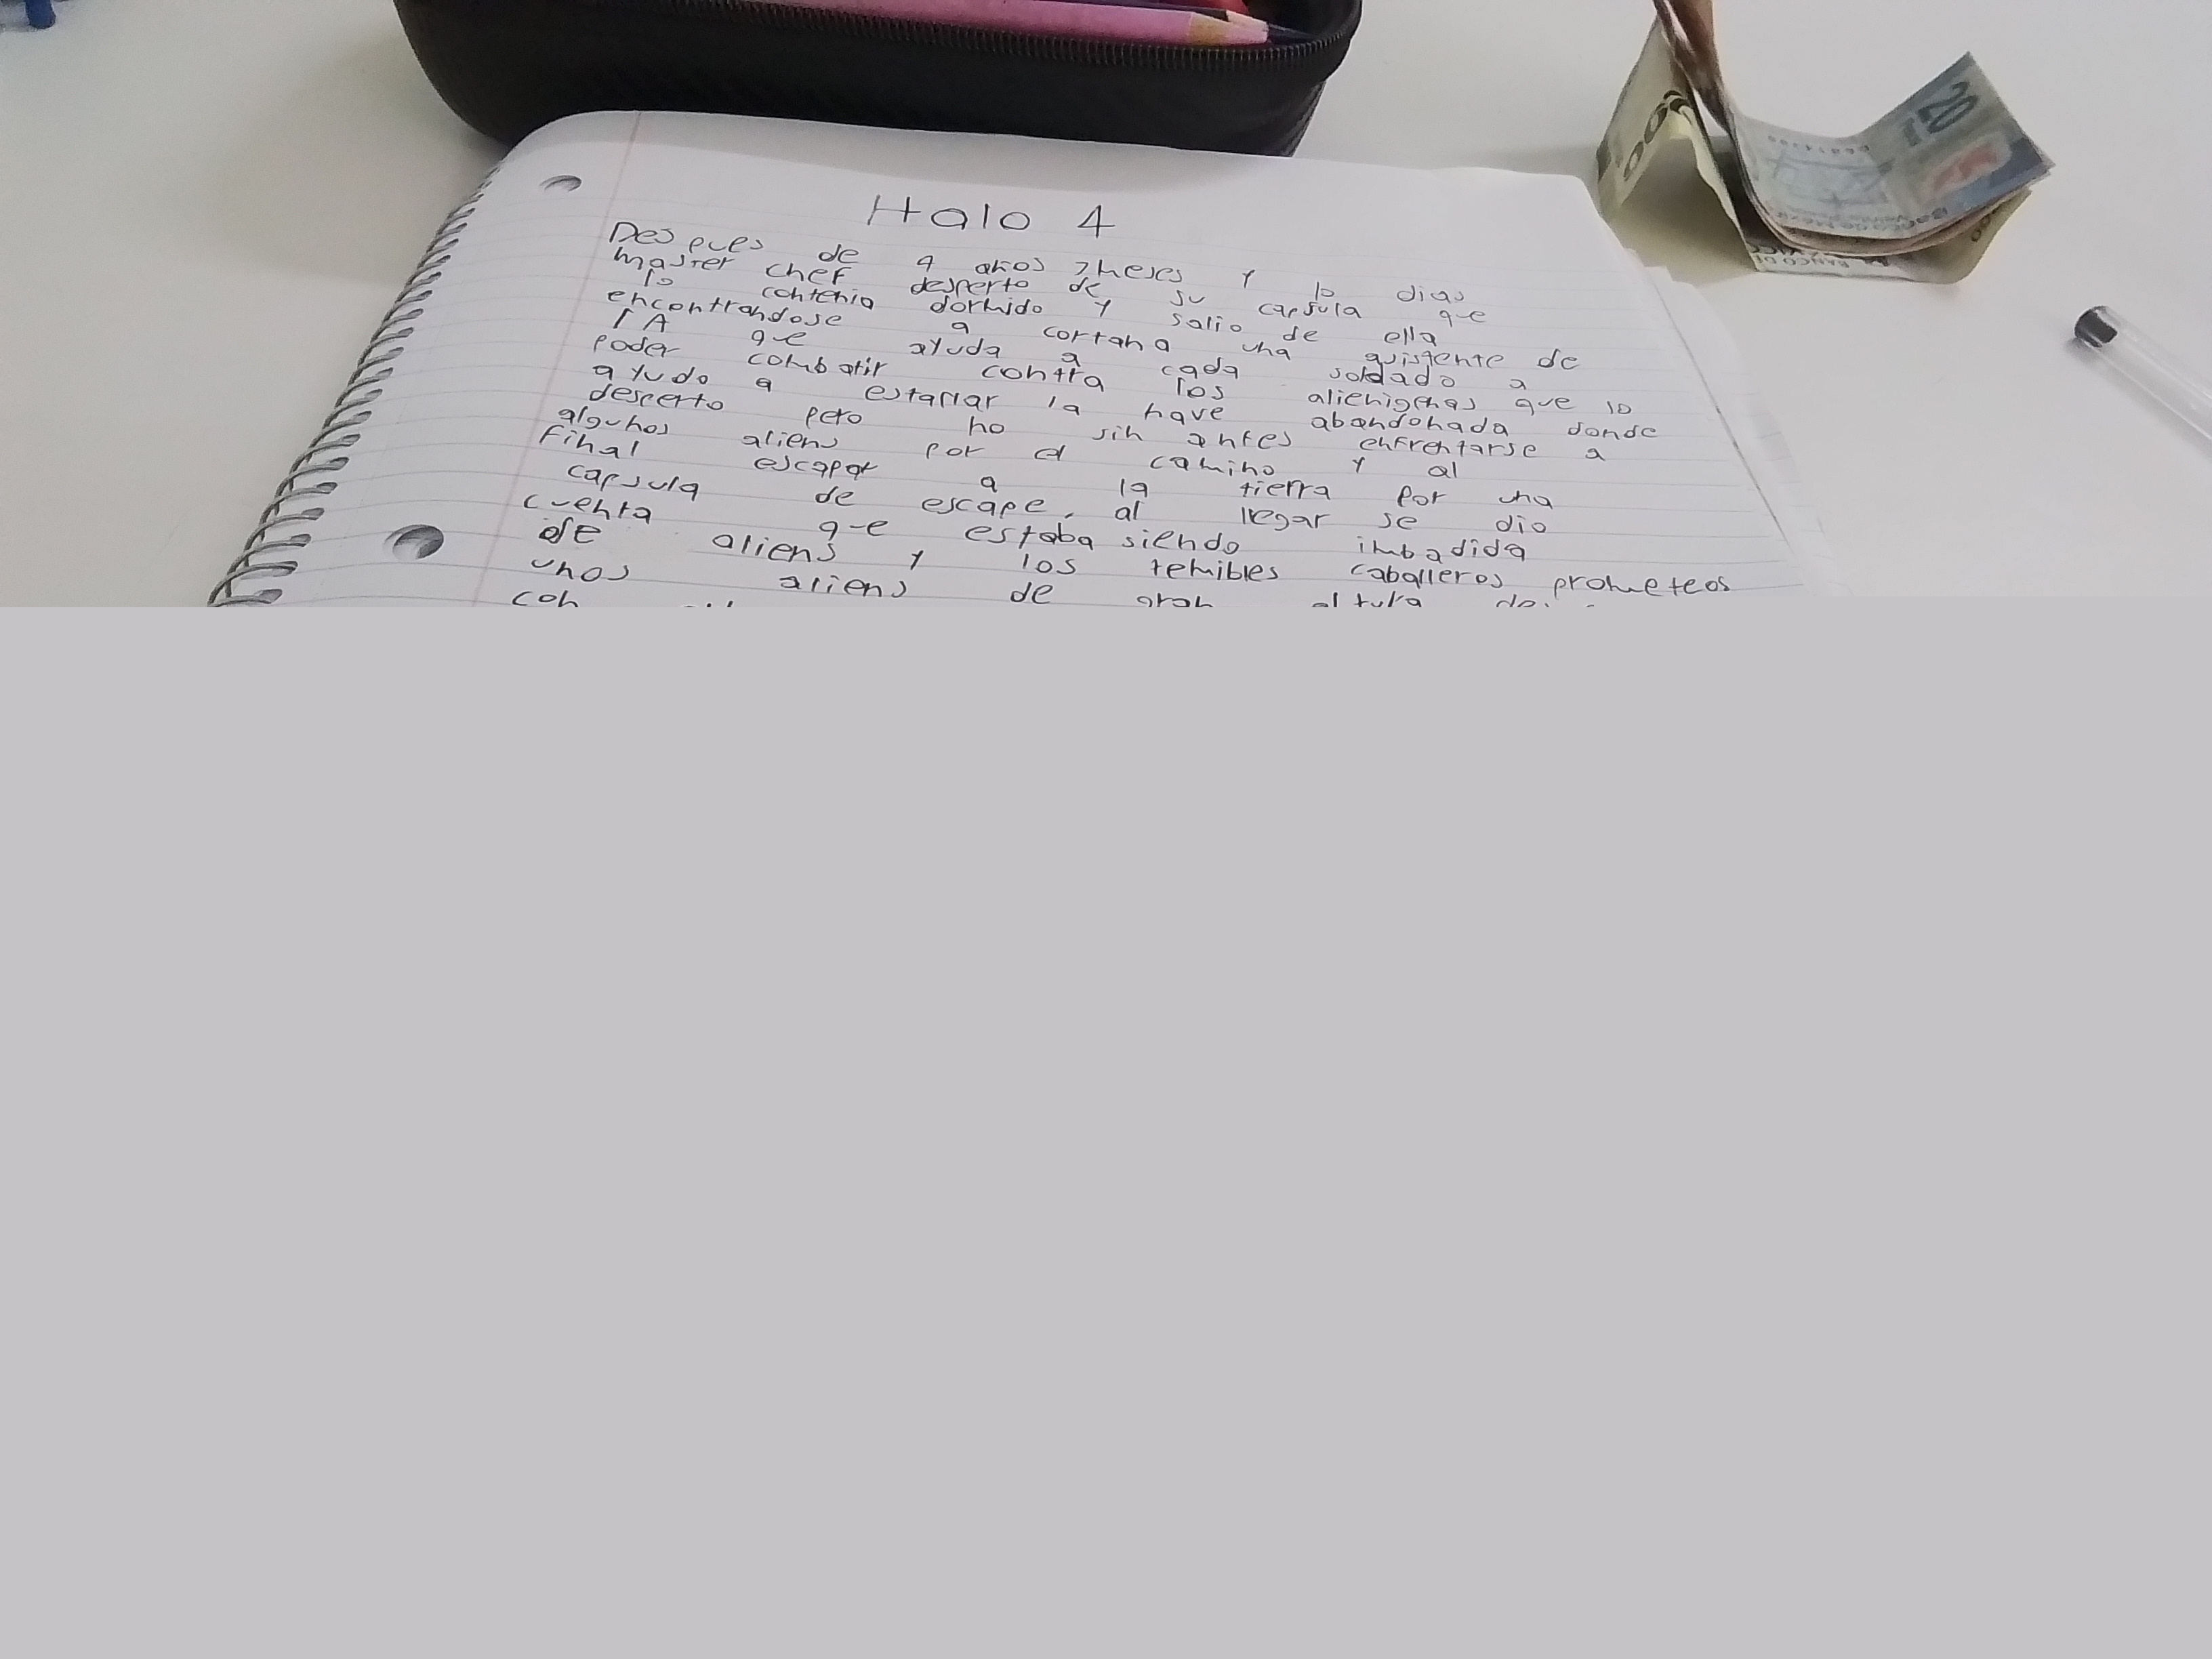 Halo 4
Despues de 4 años 7 meses y 10 dias
master chef desperto de su capsula que
lo contenia dormido y salio de ella
encontrandose a cortana una asistente de
IA que ayuda a cada soldado a
poder combatir contra los alienigenas que lo
ayudo a la nave abandonada donde
desperto pero no sin antes enfrentarse a
algunos aliens por el camino y al
final escapar a la tierra por una
capsula de escape, al llegar se dio
cuenta que estaba siendo imbadida
de aliens y los temibles caballeros prometeos
unos aliens de gran altura
con
20
BANCO DE